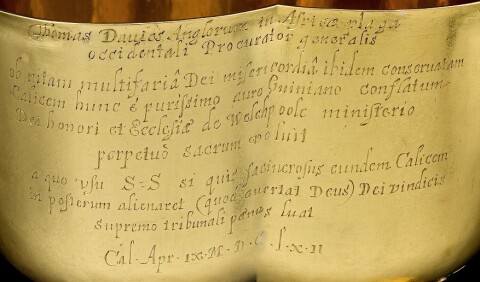 Thomas Davies Anglorum in Africæ plaga
occidentali Procurator generalis
ob vitam multifariâ Dei misericordiâ ibidem conservatam
Calicem hunc è purissimo auro Guiniano conflatum
Dei honori et Ecclesiæ de Welchpoole ministerio
perpetuò sacrum voluit
a quo usu S:S si quis sacrilegus eundem Calicem
in posterum alienaret (quod avertat Deus) Dei vindicis
supremo tribunali pœnas luat
Cal · Apr · IX · M · D · C · L · X · II